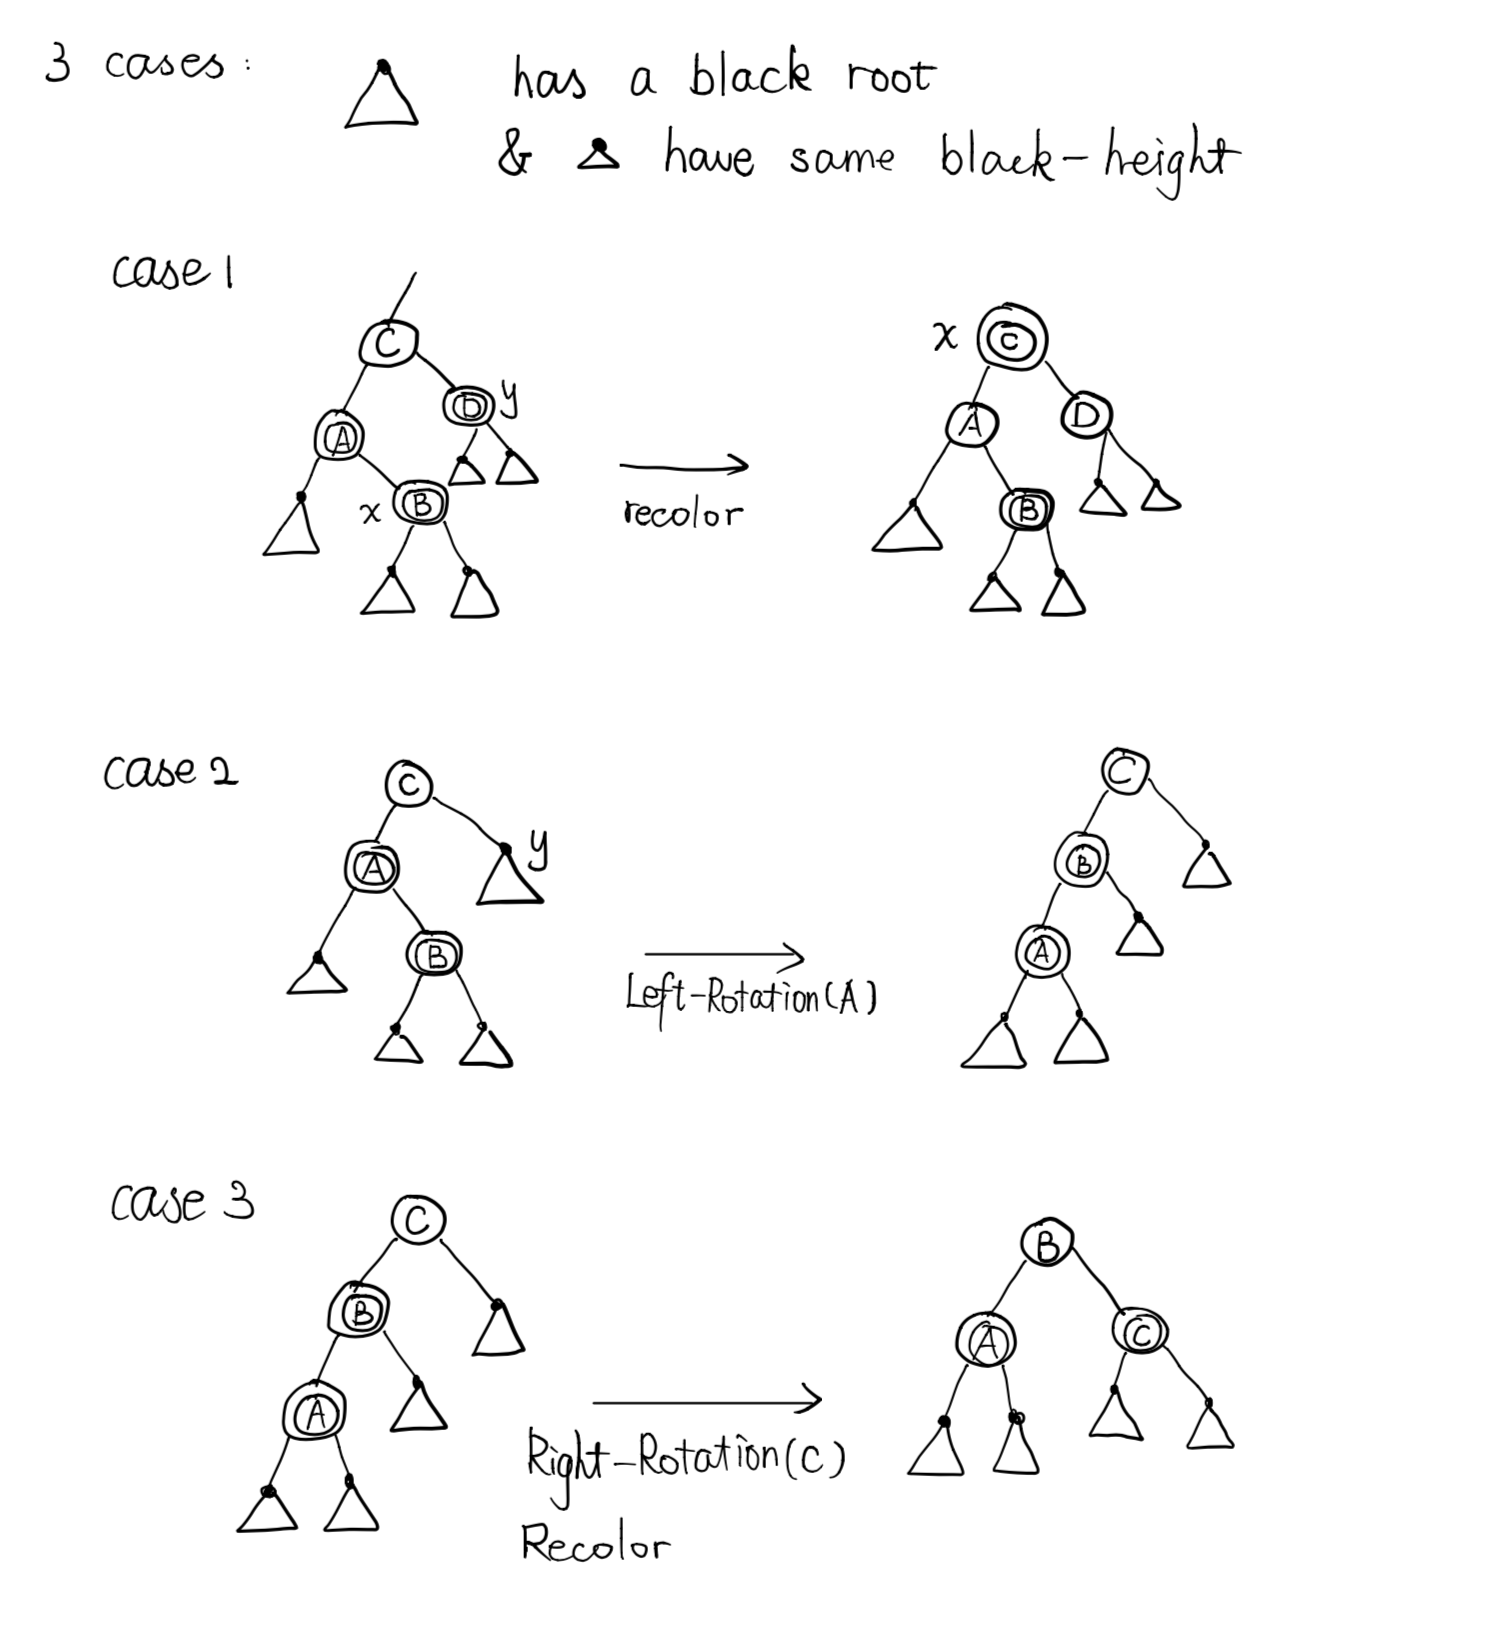 3 cases: has a black root
& have same black-height
case 1
C
D y
A
x B
recolor
x C
A D
B
case 2
C
A y
B
Left-Rotation(A)
C
B
A
case 3
C
B
A
Right-Rotation(C)
Recolor
B
A C